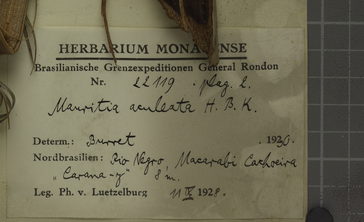 HERBARIUM MONACENSE
Brasilianische Grenzexpeditionen General Rondon
Nr. 22119 . Pag. 2.
Mauritia aculeata H. B. K.
Determ.: Burret . 1930.
Nordbrasilien: Rio Negro, Macarabi Cachoeira
„Carana-y" 8 m.
Leg. Ph. v. Luetzelburg 11 IX 1928.